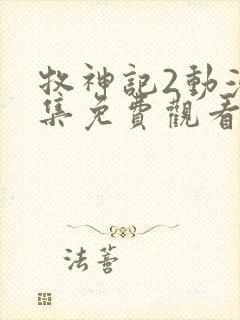 牧神記2動
集免費觀看
法蒼